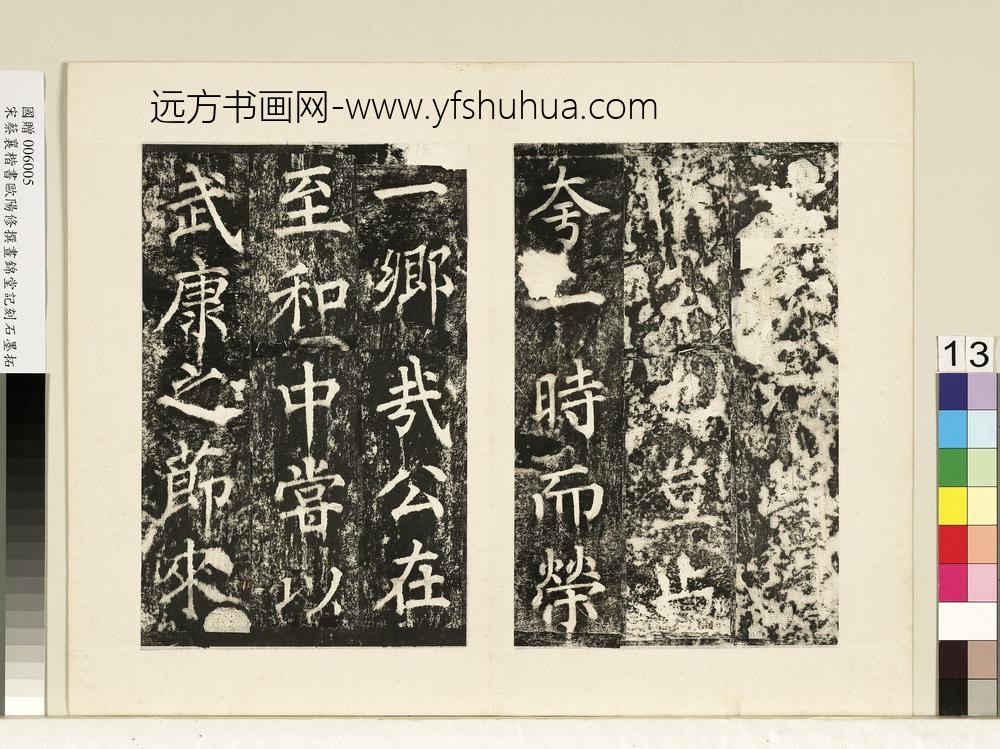 远方书画网-www.yfshuhua.com
國贈 006005
宋蔡襄楷書歐陽修撰晝錦堂記刻石墨拓
公也豈止
夸一時而榮
一鄉哉公在
至和中嘗以
武康之節來
13